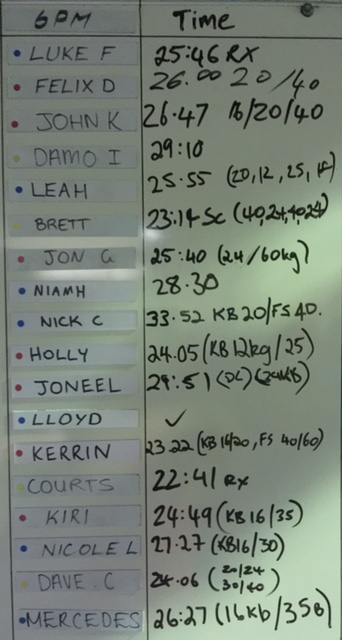 6PM Time
LUKE F 25:46 RX
FELIX D 26.00 20/40
JOHN K 26.47 16/20/40
DAMO I 29:10
LEAH 25.55 (20,12,25,
BRETT 23:14 SC (40,24,40,24)
JON G 25:40 (24/60kg)
NIAMH 28.30
NICK C 33.52 KB 20/FS 40.
HOLLY 24.05 (KB 12kg/25)
JONEEL 29:51 (DL)
LLOYD ✓
KERRIN 23.22 (KB 16/20, FS 40/60)
COURTS 22:41 Rx
KIRI 24:49 (KB 16/35)
NICOLE L 27.27 (KB16/30)
DAVE.C 24.06 (20/24 30/40)
MERCEDES 26:27 (16Kb/35B)